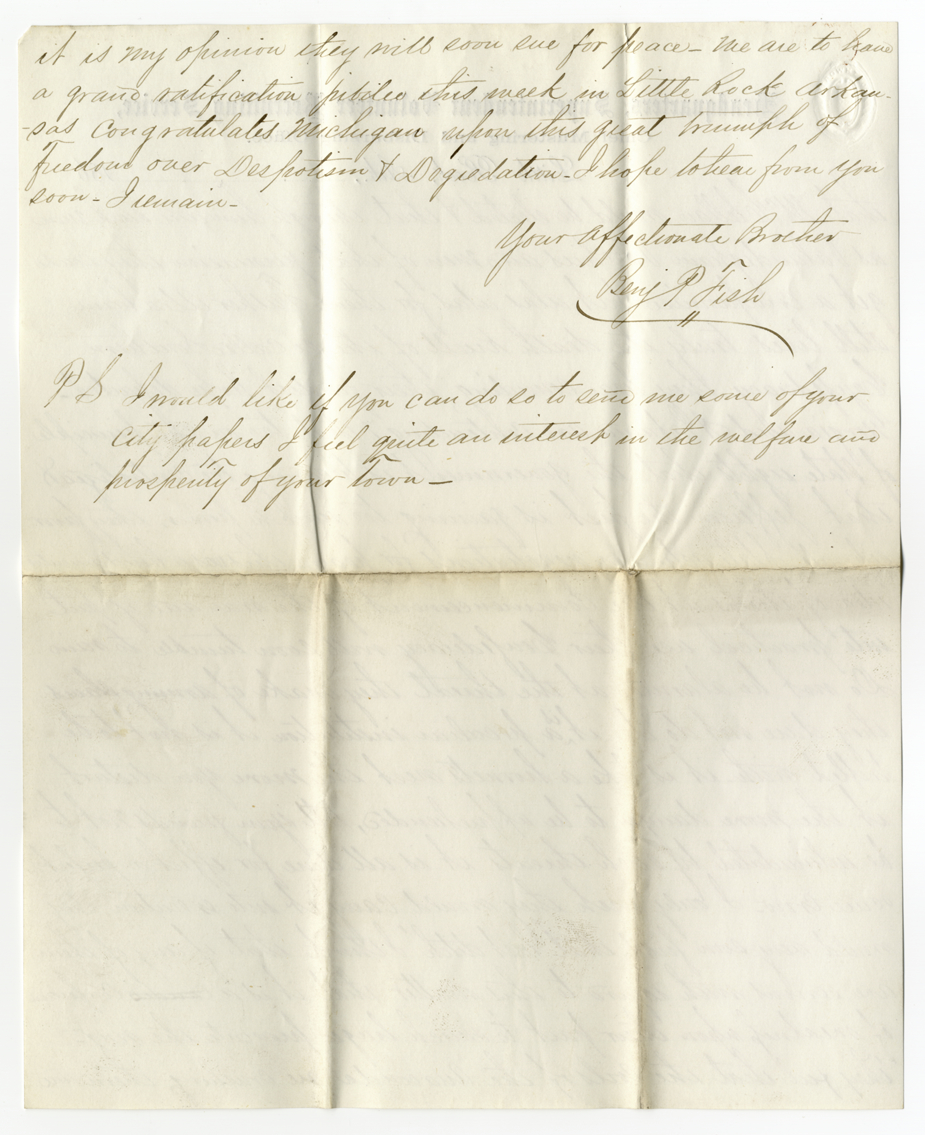 it is my opinion they will soon sue for peace - We are to have
a grand ratification jubilee this week in Little Rock Arkan-
-sas Congratulates Michigan upon this great triumph of
Freedom over Despotism & Degredation - I hope to hear from you
soon - I remain -
Your Affectionate Brother
Benj P Fish
P S I would like if you can do so to send me some of your
City papers I feel quite an interest in the welfare and
prosperity of your Town -